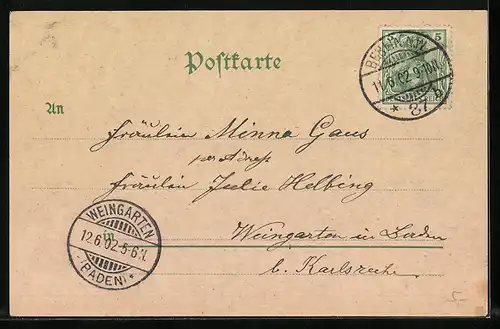 Postkarte
5
BERLIN, N.W.
11.6.02.9-10N.
* 87 b
An
Fräulein Minna Gaus
per Adresse
Fräulein Julie Helbing
in
Weingarten in Baden
b. Karlsruhe
WEINGARTEN
12.6.02.5-6N.
* (BADEN) *
5-